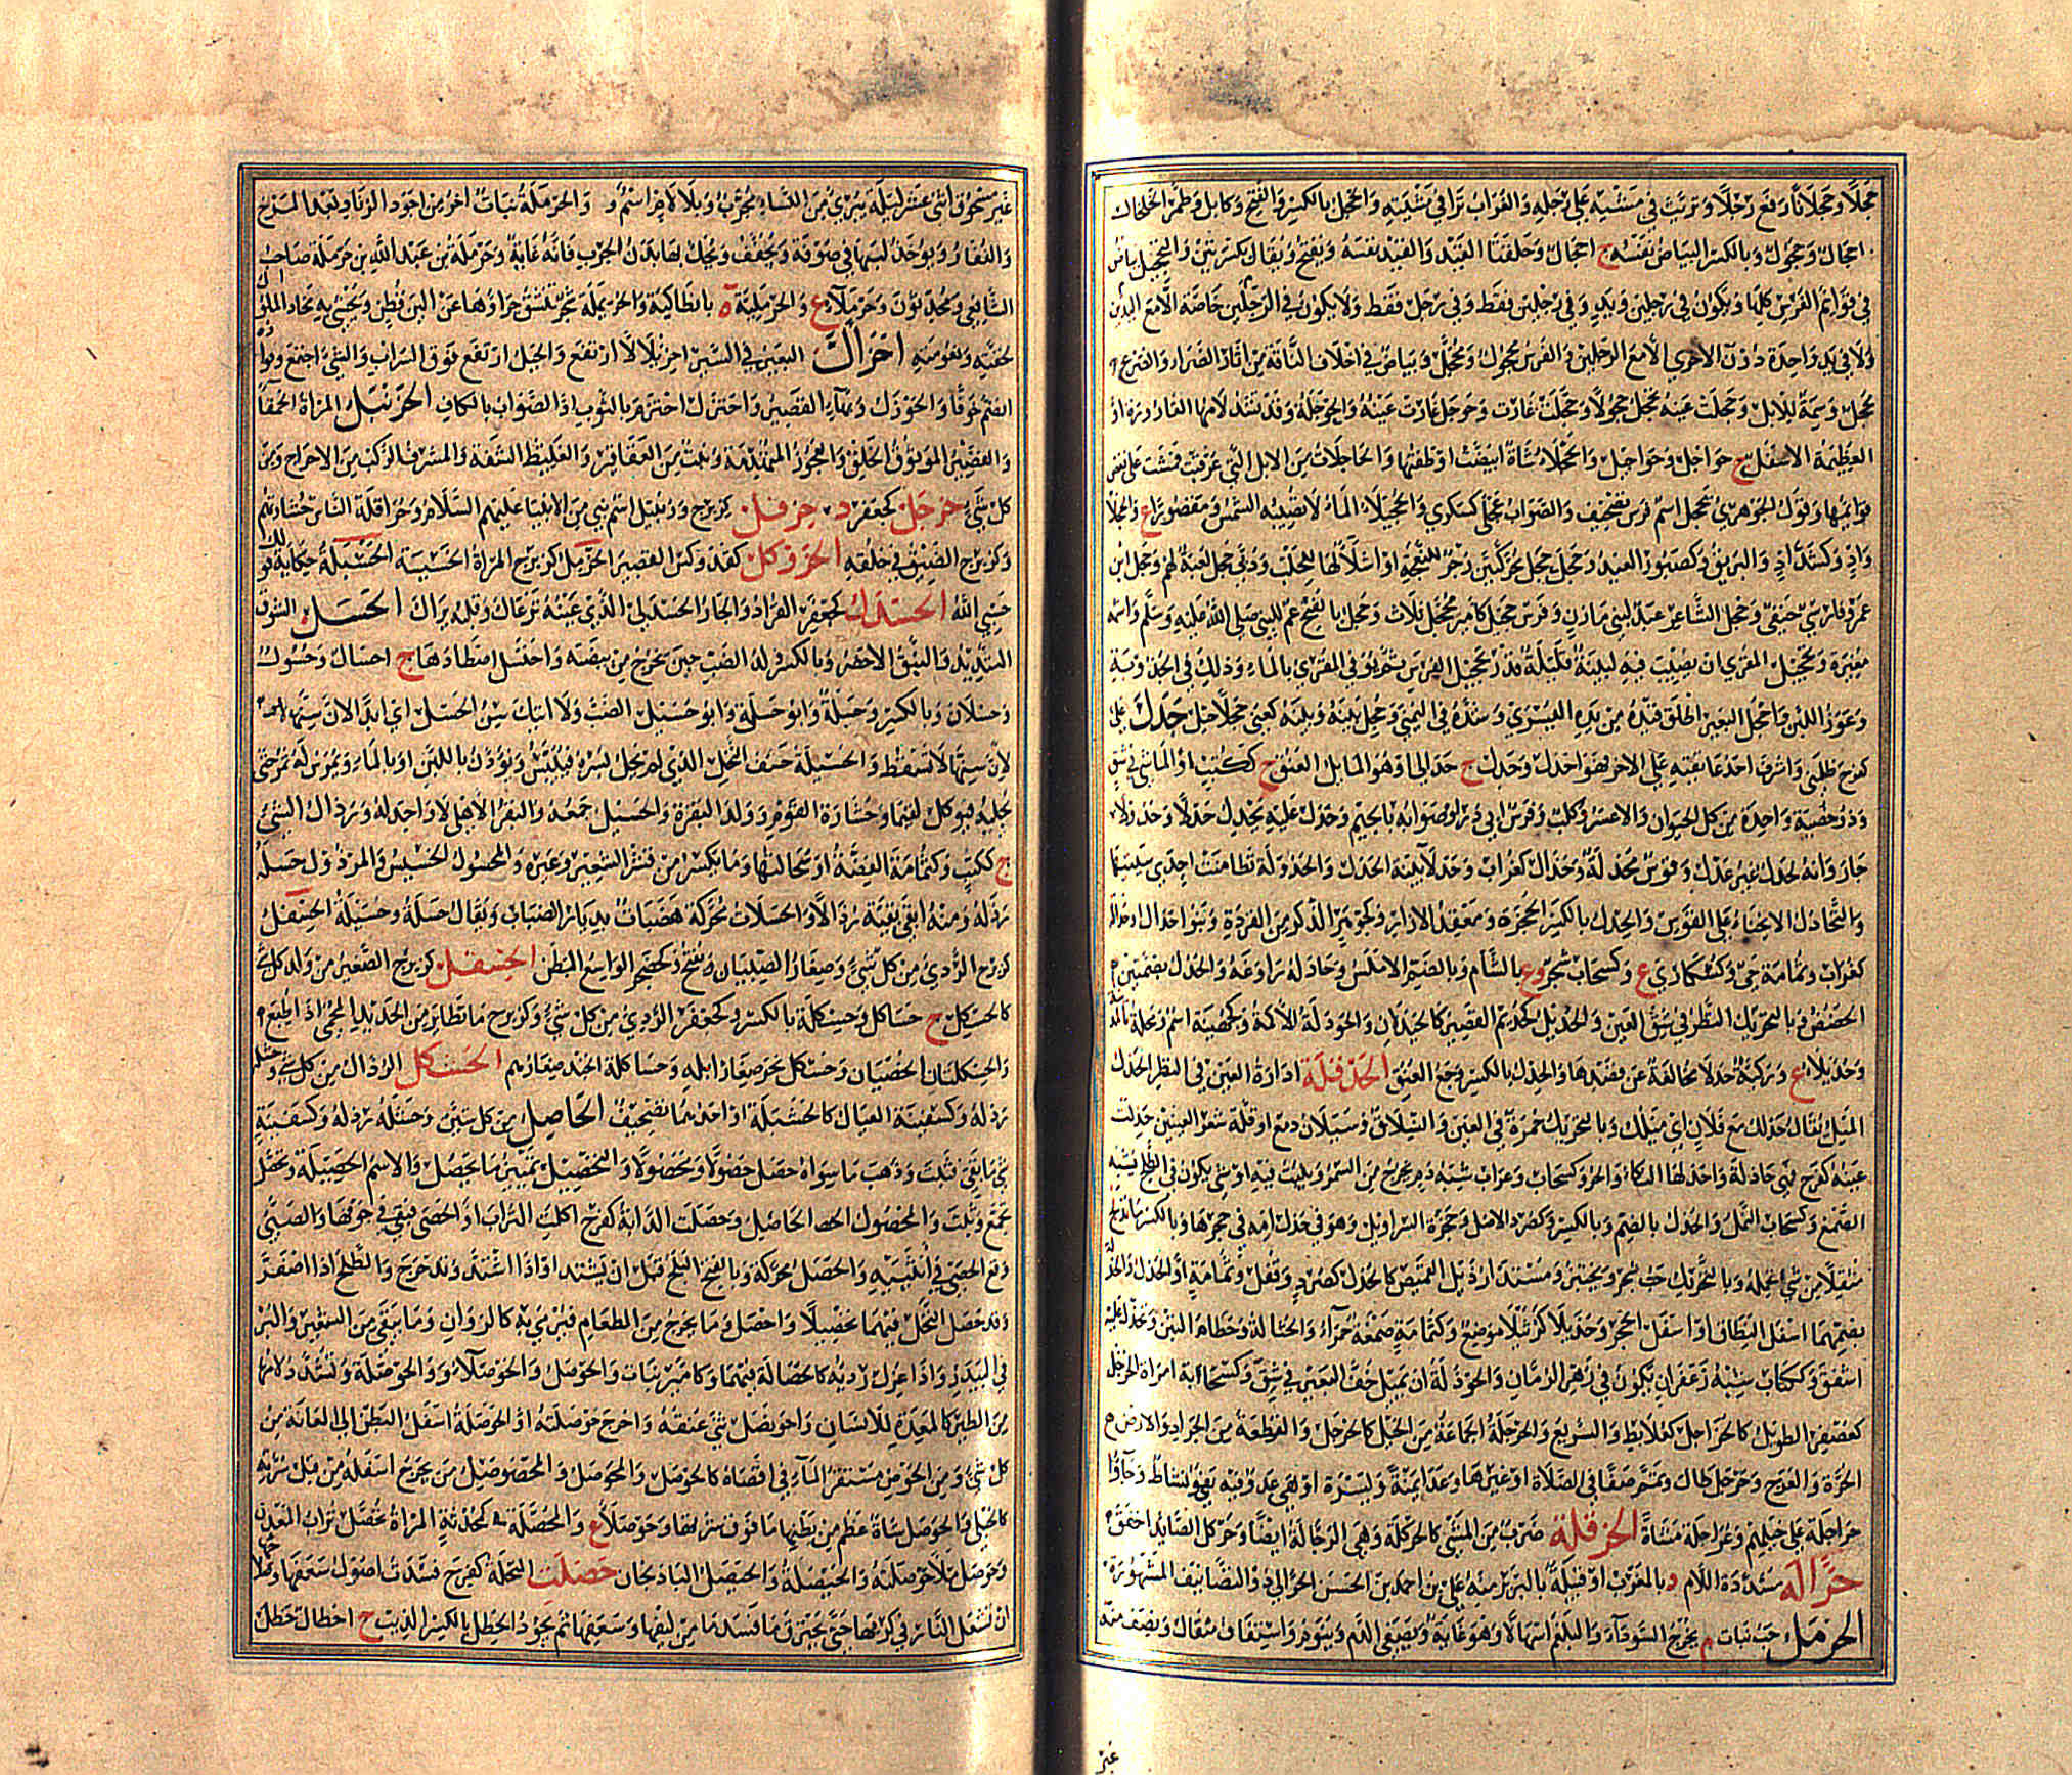 حجلا وحجلانا رفع رجلا وتريث في مشيه على رجله والغراب نزا في مشيته والحجل بالكسر والفتح وكابل وطمر الخلخال
احجال وحجول وبالكسر البياض نفسه ج احجال وحلقتا القيد والقيد نفسه ويفتح ويقال بكسرتين والتحجيل بياض
في قوائم الفرس كلها ويكون في رجلين ويد وفي رجلين فقط وفي رجل فقط ولا يكون في الرجلين خاصة الا مع اليدين
ولا في يد واحدة دون الاخرى الا مع الرجلين والفرس محجول ومحجل وبياض في اخلاف الناقة من اثار الصرار والضرع
محجل وسمة للابل وحجلت عينه تحجل حجولا وحجلت غارت وحوجل غارت عينه والحوجلة وقد تشدد لامها القارورة او
العظيمة الاسفل ج حواجل وحواجيل والحجلاء شاة ابيضت اوظفتها والحاجلات من الابل التي عرقبت فمشت على بعض
قوائمها وقول الجوهري تحجل اسم فرس تصحيف والصواب عجلى كسكرى والحجيلاء الماء لا تصيبه الشمس ومقصورا ع
واد وكشداد والبريق وكصبور البعيد وحجل حجل محركتين زجر للنعجة او اشلاء لها للحلب ودبى حجل لعبة لهم وحجل ابن
عمرو فارس حنفي وحجل الشاعر عبد لبني مازن وفرس حجيل كامير محجل ثلاث وحجل بالفتح عم للنبي صلى الله عليه وسلم واسمه
مغيرة وتحجيل المقرى ان يصيب فيه لبنة قليلة قدر تحجيل الفرس ثم يوفى المقرى بالماء وذلك في الجدوبة
وعوز اللبن واحجل البعير اطلق قيده من يده اليسرى وشده في اليمنى وحجل بينه وبينه كعنى حجلا حيل حدل علي
كفرح ظلمني واشرف احد عاتقيه على الاخر فهو احدل وحدل ج حدالى او هو المايل العنق ج ككتب او الماشي في شق
وذو خصية واحدة من كل الحيوان والاعسر وكلب وفرس ابي ذر او صوابه بالجيم وحدل عليه يحدل حدلا وحدولا
جار وانه لحدل غير عدل وقوس محدلة وحدال كغراب وحدلاء بينة الحدل والحدولة تطامنت احدى سيتيها
والتحادل الانحناء على القوس والحدل بالكسر الحجزة ومعقد الازار وكجوهر الذكر من القردة وبنو حدال او حدالة
كغراب وثمامة حي وكسكارى ع وكسحاب شجر وع بالشام وبالضم الاملس وحادله راوغه والحدل بضمتين
الحضض وبالتحريك النظر في شق العين والحذيل كحذيم القصير كالحيدلان والحودلة الاكمة وكجهينة اسم ومحلة بالمدينة
وحديلاء ع وركية حدلاء مخالفة عن قصدها والحدل بالكسر وجع العنق الحدقلة ادارة العين في النظر الحذل
الميل يقال حذلك مع فلان اي ميلك وبالتحريك حمرة في العين وانسلاق وسيلان دمع او قلة شعر العينين حذلت
عينه كفرح فهي حاذلة واحذلها البكاء والحر وكسحاب وغراب شبه دم يخرج من السمر ويثبت فيه او شيء يكون في الطلح يشبه
الصمغ وكسحاب النمل والحذل بالضم وبالكسر وكصرد الاصل وحجزة السراويل وهو في حذل امه في حجرها وبالكسر ما تدلج
مثقلا من شيء تحمله وبالتحريك حب شجر ويختبز ومستدار ذيل القميص كالحذل كصرد وقفل وثمامة او الحذل والحذالة
بضمهما اسفل النطاق او اسفل الحجز وحذيلاء كرتيلاء موضع وكثمامة صمغة حمراء والحثالة وحطام التبن وتحذل عليه
اشفق وككتاب شبه زعفران يكون في زهر الرمان والحوذلة ان يميل خف البعير في شق وكسحابة امراة الحرجل
كعصفر الطويل كالحراجل كعلابط والسريع والحرجلة الجماعة من الخيل كالحرجل والقطعة من الجراد والارض
الحرة والعرج وحرجل طال وتمم صفا في الصلاة او غيرها وعدا يمنة ويسرة او هي عدو فيه بغي ونشاط وجاؤا
حراجلة على خيلهم وعراجلة مشاة الحرقلة ضرب من المشي كالحركلة وهي الرجالة ايضا وحركل الصائد اخفق
حرالة مشددة اللام د بالمغرب او قبيلة بالبربر منه علي بن احمد بن الحسن الحرالي ذو التصانيف المشهورة
الحرمل حب نبات م يخرج السوداء والبلغم اسهالا وهو غاية ويصفي الدم وينوم واستفاف مثقال ونصف منه
غير
غير مسحوق اثني عشر ليلة يبرئ من النساء مجرب وبلا لام اسم والحرملة نبات اخر من اجود الزناد بعد المرخ
والعفار ويوخذ لبنها في صوفة ويجفف وتحك بها بدن الجرب فانه غاية وحرملة بن عبد الله بن حرملة صاحب
الشافعي ومحدثون وحرملاء ع والحرملية ة بانطاكية والحريملة شجرة تنشق جراؤها عن الين قطن ويحشى به مخاد الملوك
لخفته ونعومته احزال البعير في السير احزئلالا ارتفع والجبل ارتفع فوق السراب والشيء اجتمع
الضم خوفا والحوزل وبهاء القصير واحتزل احتزم بالثوب اذ الصواب بالكاف الحزنبل المراة الحمقاء
والقصير الموثوق الخلق والعجوز المتهدمة ونبت من العقاقير والغليظ الشفة والمشرف الركب من الاحراج ومن
كل شيء حزجل كجعفر د حزقل كزبرج وزنبيل اسم نبي من الانبياء عليهم السلام وحزاقلة الناس خشارتهم
وكزبرج الضيق في خلقه الحزوكل كفدوكس القصير الحزمل كزبرج المراة الخسيسة الحسبلة حكاية قولك
حسبي الله الحسدل كجعفر القراد والجار الحسدلي الذي عينه ترعاك وقلبه يراك الحسل السوق
الشديد والنبق الاخضر وبالكسر ولد الضب حين يخرج من بيضته واحتسل اصطادها ج احسال وحسول
وحسلان وبالكسر وحسلة وابو حسل وابو حسيل الضب ولا اتيك سن الحسل اي ابدا لان سنها
لان سنها لا تسقط والحسيلة حشف النخل الذي لم يحل بسره فييبسونه ويودن باللبن او بالماء ويمرس له تمر حتى
يحليه فيوكل لقيما وخشارة القوم وولد البقرة والحسيل جمعه والبقر الاهلي لا واحد له ورذال الشيء
ج ككتب وكثمامة الفضة او سحالتها وما يكسر من قشر الشعير وغيره والمحسول الخسيس والمرذول حسله
رذله ومنه ابقى بقية رذالا والحسلات محركة هضبات بديار الضباب ويقال حسلة وحسيلة الحسفل
كزبرج الردي من كل شيء وصغار الصبيان ويفتح وكحضجر الواسع البطن الحسقل كزبرج الصغير من ولد كل شيء
كالحسكل ج حساكل وحسكلة بالكسر وكجعفر الردي من كل شيء وكزبرج ما تطاير من الحديد المحمى اذا طبع
والحسكلتان الخصيان وحسكل نحر صغار ابله وحساكلة الجند صغارهم الحشكل الرذال من كل شيء وحشله
رذله وكسفينة العيال كالحشبلة او احدهما تصحيف الحاصل من كل شيء وحسله رذله وكسفينة
شيء ما بقي وثبت وذهب ما سواه حصل حصولا ومحصولا والتحصيل تمييز ما يحصل والاسم الحصيلة وتحصل
تجمع وثبت والمحصول الحاصل وحصلت الدابة كفرح اكلت التراب او الحصى فبقي في جوفها والصبي
وقع الحصى في انثييه والحصل محركة وبالفتح البلح قبل ان يشتد او اذا اشتد وتدحرج والطلع اذا اصفر
وقد حصل النخل فيهما تحصيلا واحصل وما يخرج من الطعام فيرمى به كالزوان وما يبقى من الشعير والبر
في البيدر اذا عزل رديه كالحصالة فيهما وكامير نبات والحوصل والحوصلاء والحوصلة وتشدد لامها
من الطير كالمعدة للانسان واحونصل ثنى عنقه واخرج حوصلته او الحوصلة اسفل البطن الى العانة من
كل شيء ومن الحوض مستقر الماء في اقصاه كالحوصل والحوصل والمحصوصل من يخرج اسفله من قبل سرته
كالحبلى والحوصل شاة عظم من بطنها ما فوق سرتها وحوصلاء ع والمحصلة كمحدثة المراة تحصل تراب المعدن
وحوصل ملأ حوصلته والحيصلة والحيصل الباذنجان حصلت النخلة كفرح فسدت اصول سعفها
ان تشعل النار في كربها حتى يحترق ما فسد ما من ليفها وسعفها ثم يجود الحطل بالكسر الذيب ج احطال حطل